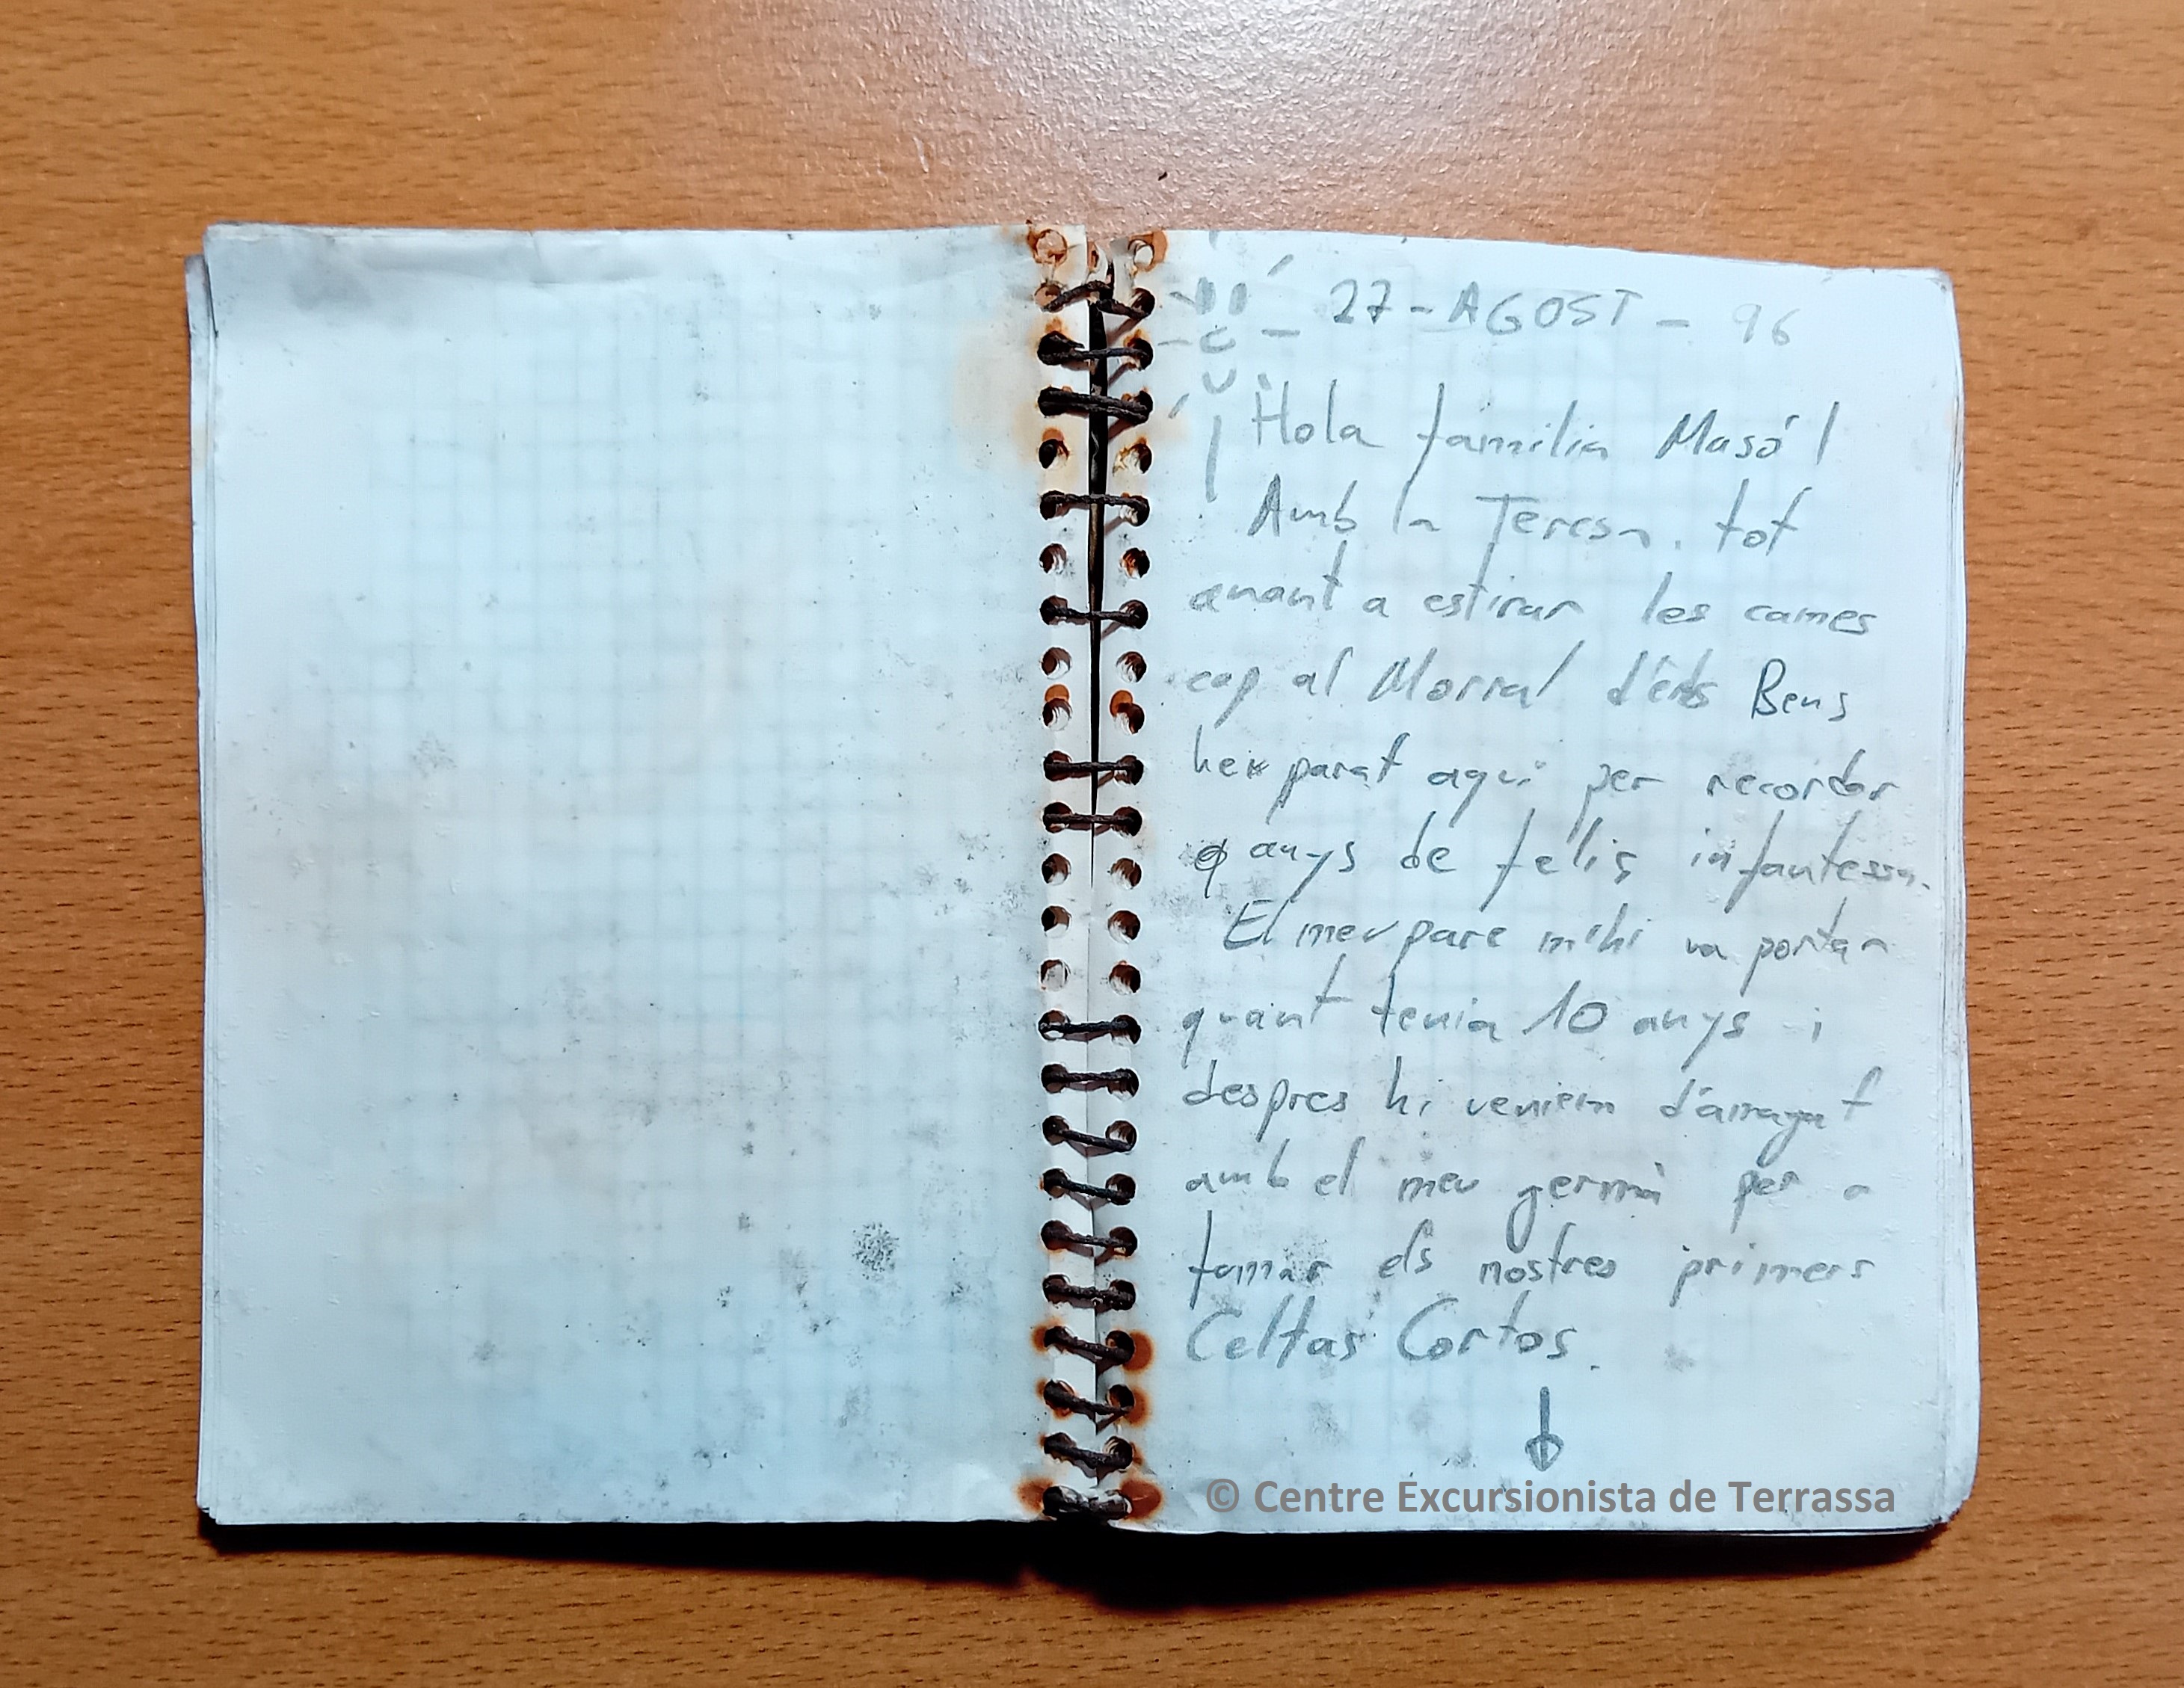 27-AGOST-96
Hola familia Masó!
Amb la Teresa. tot
anant a estirar les cames
cap al Morral Bens
heм parat aqui per recordar
anys de feliç infantesa.
El meu pare m'hi va portar
quant tenia 10 anys i
despres hi veniem d'amagat
amb el meu germà per a
fumar els nostres primers
Celtas Cortos.
© Centre Excursionista de Terrassa